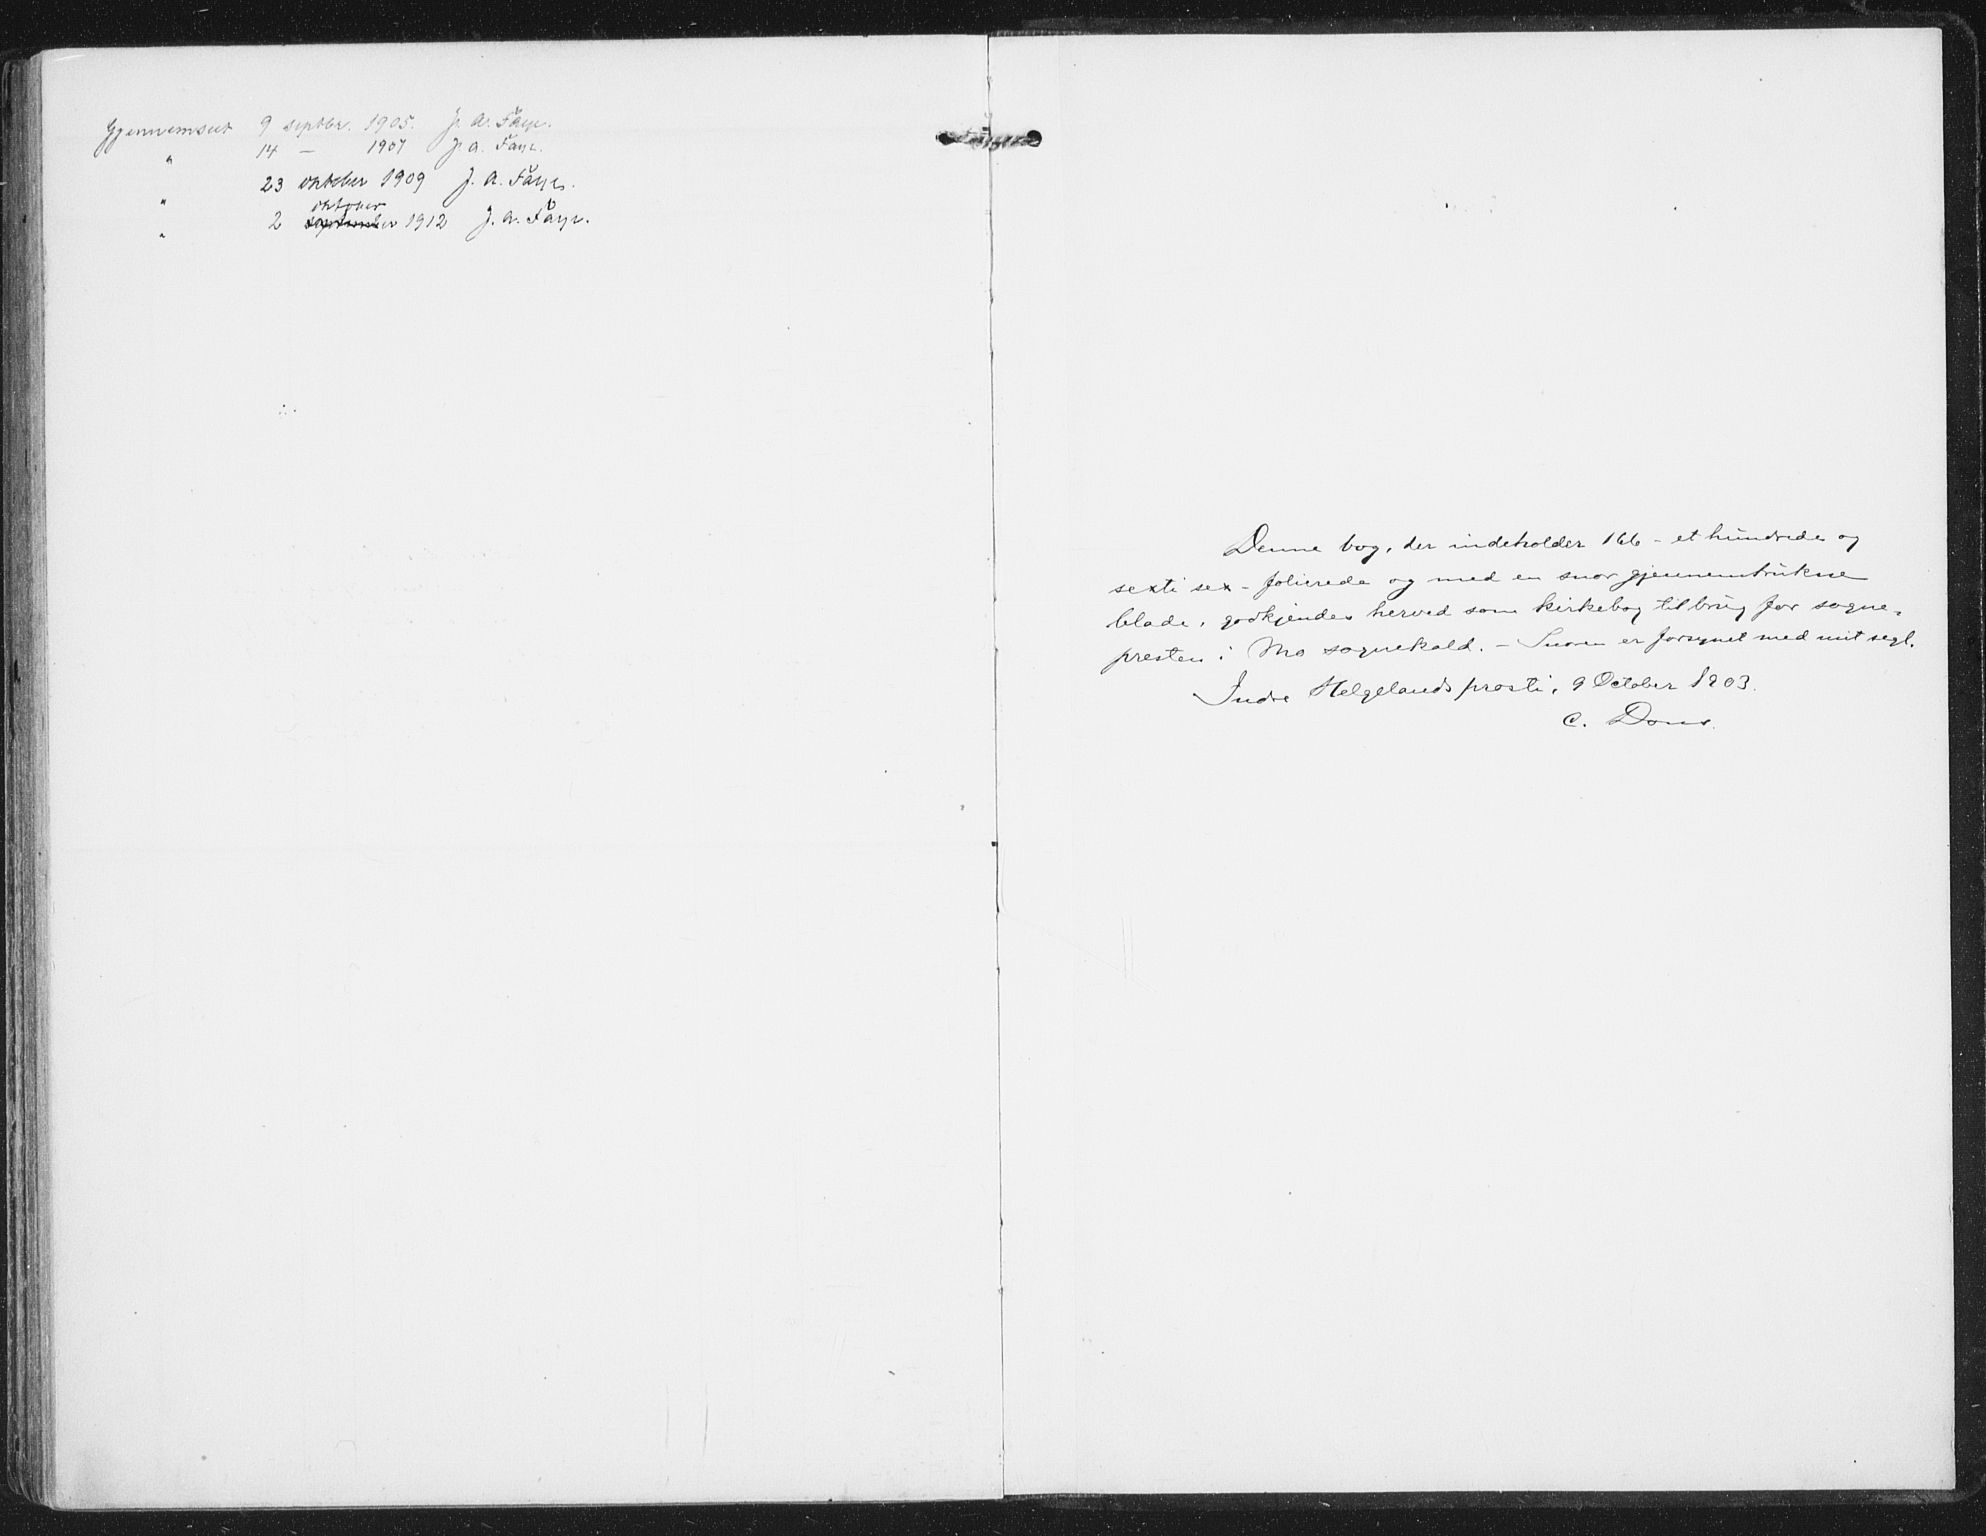 Gjennemseet 9 septbr. 1905. J. A. Fäye.
" 14 — 1907 J. A. Faye.
" 23 oktober 1909 J. A. Fäye.
oktober
" 2 september 1912 J. A. Fäye.
Denne bog, der indeholder 166 - et hundrede og
sexti sex - folierede og med en snor gjennemtrukne
blade, godkjendes herved som kirkebog til brug for sogne-
presten i Mo sognekald. - Snoren er forsynet med mit segl.
Indre Helgelands prosti, 9 October 1903.
C. Dons.